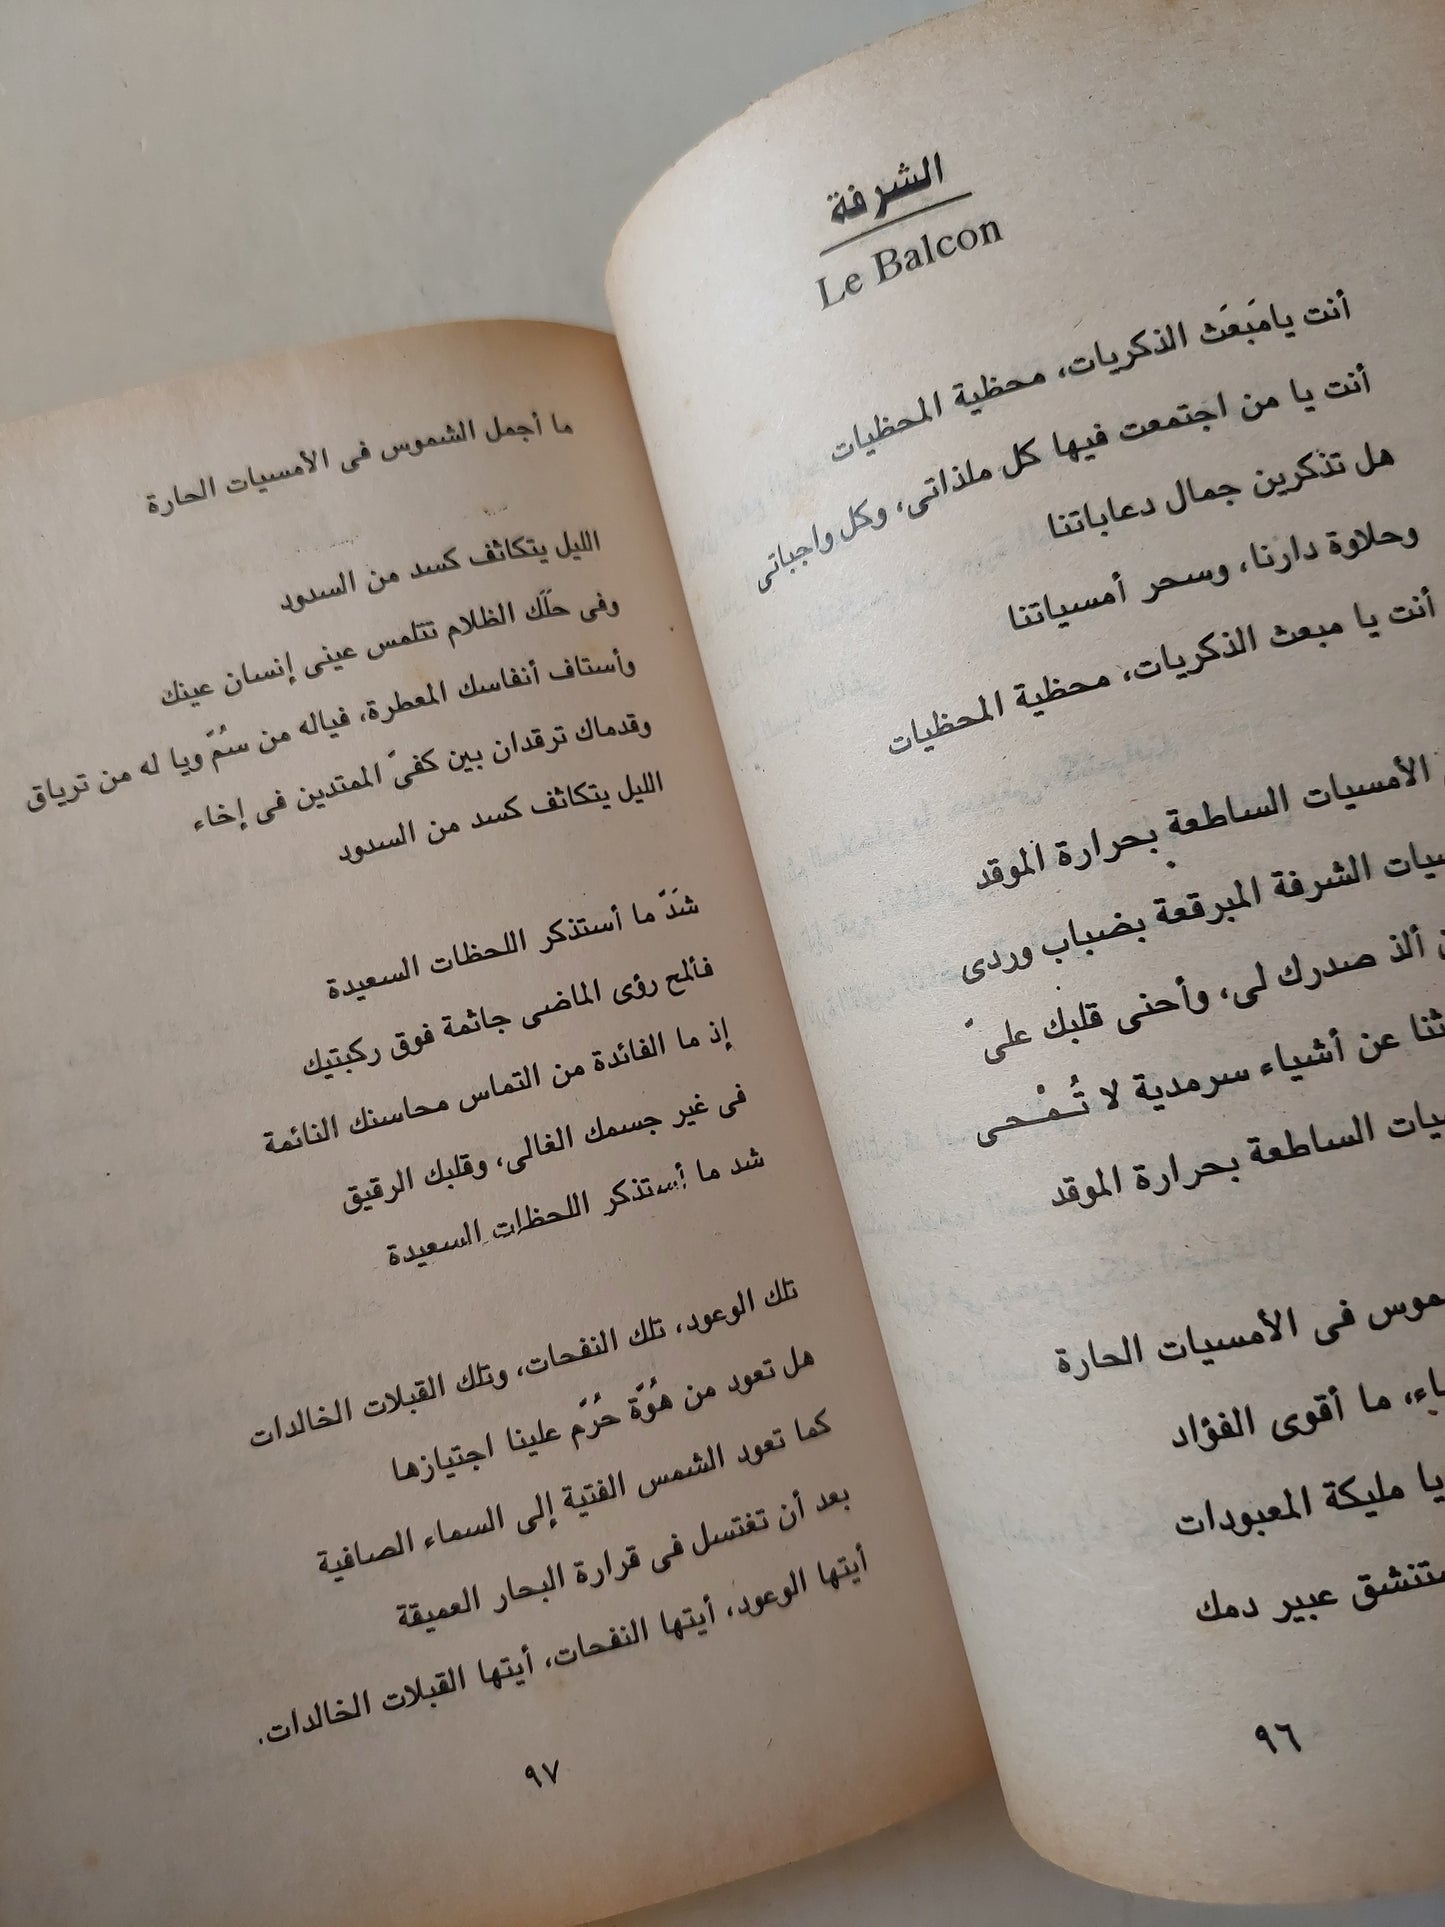 الشرفة
Le Balcon
أنت يامَبعَث الذكريات، محظية المحظيات
أنت يا من اجتمعت فيها كل ملذاتى، وكل واجباتى
هل تذكرين جمال دعاباتنا
وحلاوة دارنا، وسحر أمسياتنا
أنت يا مبعث الذكريات، محظية المحظيات
الأمسيات الساطعة بحرارة الموقد
الشرفة المبرقعة بضباب وردى
ألذ صدرك لى، وأحنى قلبك علىّ
عن أشياء سرمدية لا تُـمْـحـى
الساطعة بحرارة الموقد
فى الأمسيات الحارة
ما أقوى الفؤاد
يا مليكة المعبودات
عبير دمك
٩٦
ما أجمل الشموس فى الأمسيات الحارة
الليل يتكاثف كسد من السدود
وفى حلَك الظلام تتلمس عينى إنسان عينك
وأستاف أنفاسك المعطرة، فياله من سُمّ ويا له من ترياق
وقدماك ترقدان بين كفىّ الممتدين فى إخاء
الليل يتكاثف كسد من السدود
شَدّ ما أستذكر اللحظات السعيدة
فألمح رؤى الماضى جاثمة فوق ركبتيك
إذ ما الفائدة من التماس محاسنك النائمة
فى غير جسمك الغالى، وقلبك الرقيق
شد ما أستذكر اللحظات السعيدة
تلك الوعود، تلك النفحات، وتلك القبلات الخالدات
هل تعود من هُوّة حُرّم علينا اجتيازها
كما تعود الشمس الفتية إلى السماء الصافية
بعد أن تغتسل فى قرارة البحار العميقة
أيتها الوعود، أيتها النفحات، أيتها القبلات الخالدات.
٩٧